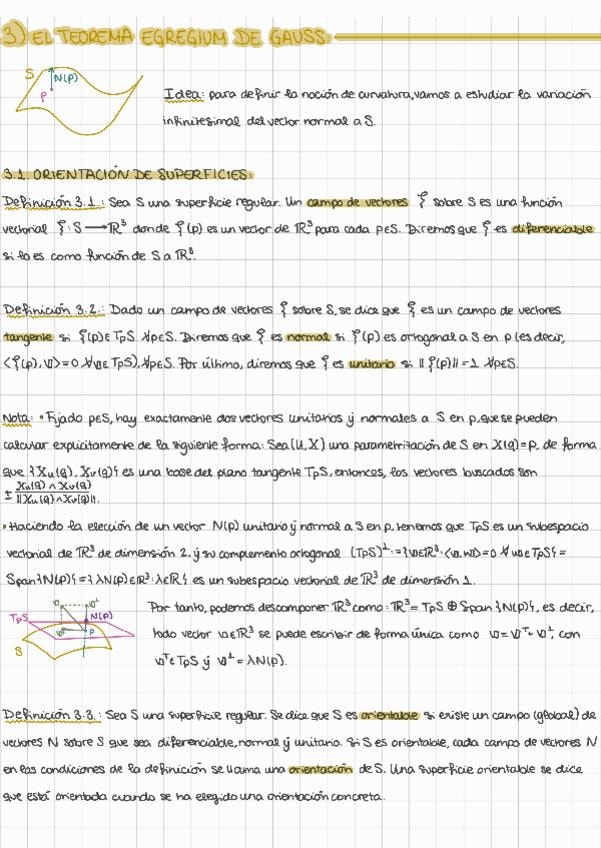 3) EL TEOREMA EGREGIUM DE GAUSS
S N(p) p
Idea: para definir la noción de curvatura, vamos a estudiar la variación
infinitesimal del vector normal a S.
3.1. ORIENTACIÓN DE SUPERFICIES:
Definición 3.1.: Sea S una superficie regular. Un campo de vectores ξ sobre S es una función
vectorial ξ: S ⟶ ℝ³ donde ξ(p) es un vector de ℝ³ para cada p∈S. Diremos que ξ es diferenciable
si lo es como función de S a ℝ³.
Definición 3.2.: Dado un campo de vectores ξ sobre S, se dice que ξ es un campo de vectores
tangente si ξ(p)∈TpS ∀p∈S. Diremos que ξ es normal si ξ(p) es ortogonal a S en p (es decir,
<ξ(p), v> = 0 ∀v∈TpS), ∀p∈S. Por último, diremos que ξ es unitario si ||ξ(p)|| = 1 ∀p∈S.
Nota: • Fijado p∈S, hay exactamente dos vectores unitarios y normales a S en p, que se pueden
calcular explícitamente de la siguiente forma: Sea (U, X) una parametrización de S en X(q)=p, de forma
que {Xu(q), Xv(q)} es una base del plano tangente TpS, entonces, los vectores buscados son
± Xu(q)∧Xv(q) / ||Xu(q)∧Xv(q)||.
• Haciendo la elección de un vector N(p) unitario y normal a S en p, tenemos que TpS es un subespacio
vectorial de ℝ³ de dimensión 2, y su complemento ortogonal (TpS)^⊥ := {v∈ℝ³: <v, w> = 0 ∀w∈TpS} =
Span{N(p)} = {λN(p)∈ℝ³: λ∈ℝ} es un subespacio vectorial de ℝ³ de dimensión 1.
TpS v v^⊥ N(p) v^T p S
Por tanto, podemos descomponer ℝ³ como: ℝ³ = TpS ⊕ Span{N(p)}, es decir,
todo vector v∈ℝ³ se puede escribir de forma única como v = v^T + v^⊥, con
v^T∈TpS y v^⊥ = λN(p).
Definición 3.3.: Sea S una superficie regular. Se dice que S es orientable si existe un campo (global) de
vectores N sobre S que sea diferenciable, normal y unitario. Si S es orientable, cada campo de vectores N
en las condiciones de la definición se llama una orientación de S. Una superficie orientable se dice
que está orientada cuando se ha elegido una orientación concreta.